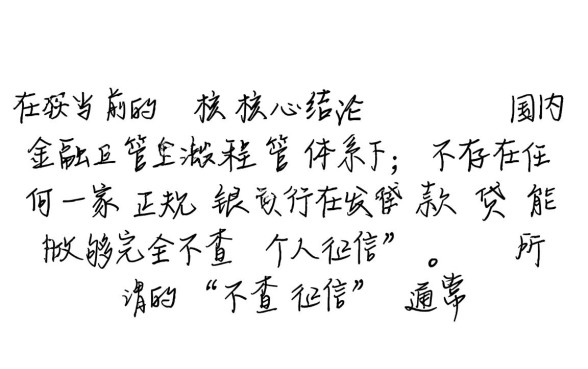 在我当前的 核 核心结论 国内
金融卫管全激程管体系下； 不存在任
何一家正规 银议行在发贷款 贷 能
做够完全不查 个人征信” 。 所
谓的 “不查征信” 通常